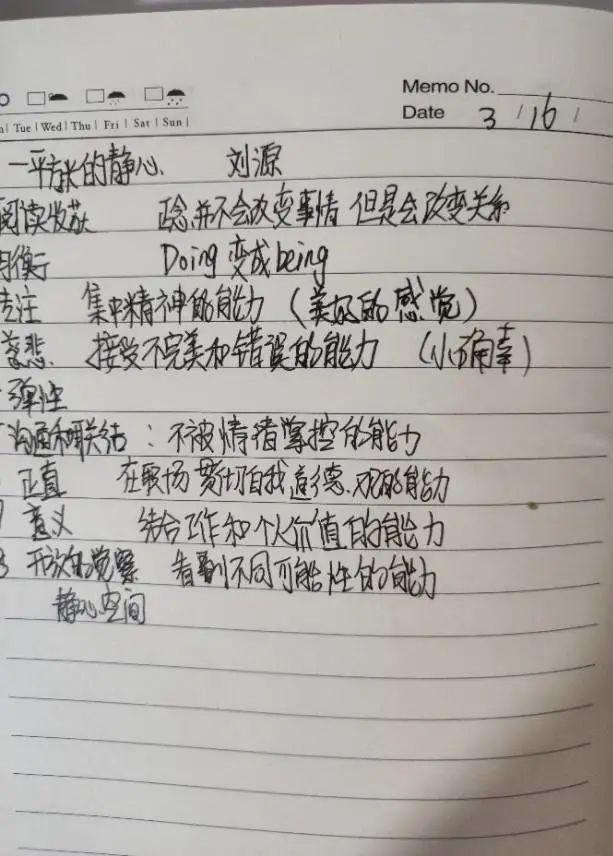 Memo No.
Tue | Wed | Thu | Fri | Sat | Sun |
Date 3 / 16 /
一平方米的静心 刘源
阅读收获 正念并不会改变事情 但是会改变关系
衡 Doing 变成 being
专注 集中精神的能力 (美好的感觉)
慈悲 接受不完美和错误的能力 (小确幸)
弹性
沟通和联结: 不被情绪掌控的能力
正直 在职场贯切自我道德观的能力
意义 结合工作和个人价值的能力
8 开放的觉察 看到不同可能性的能力
静心空间